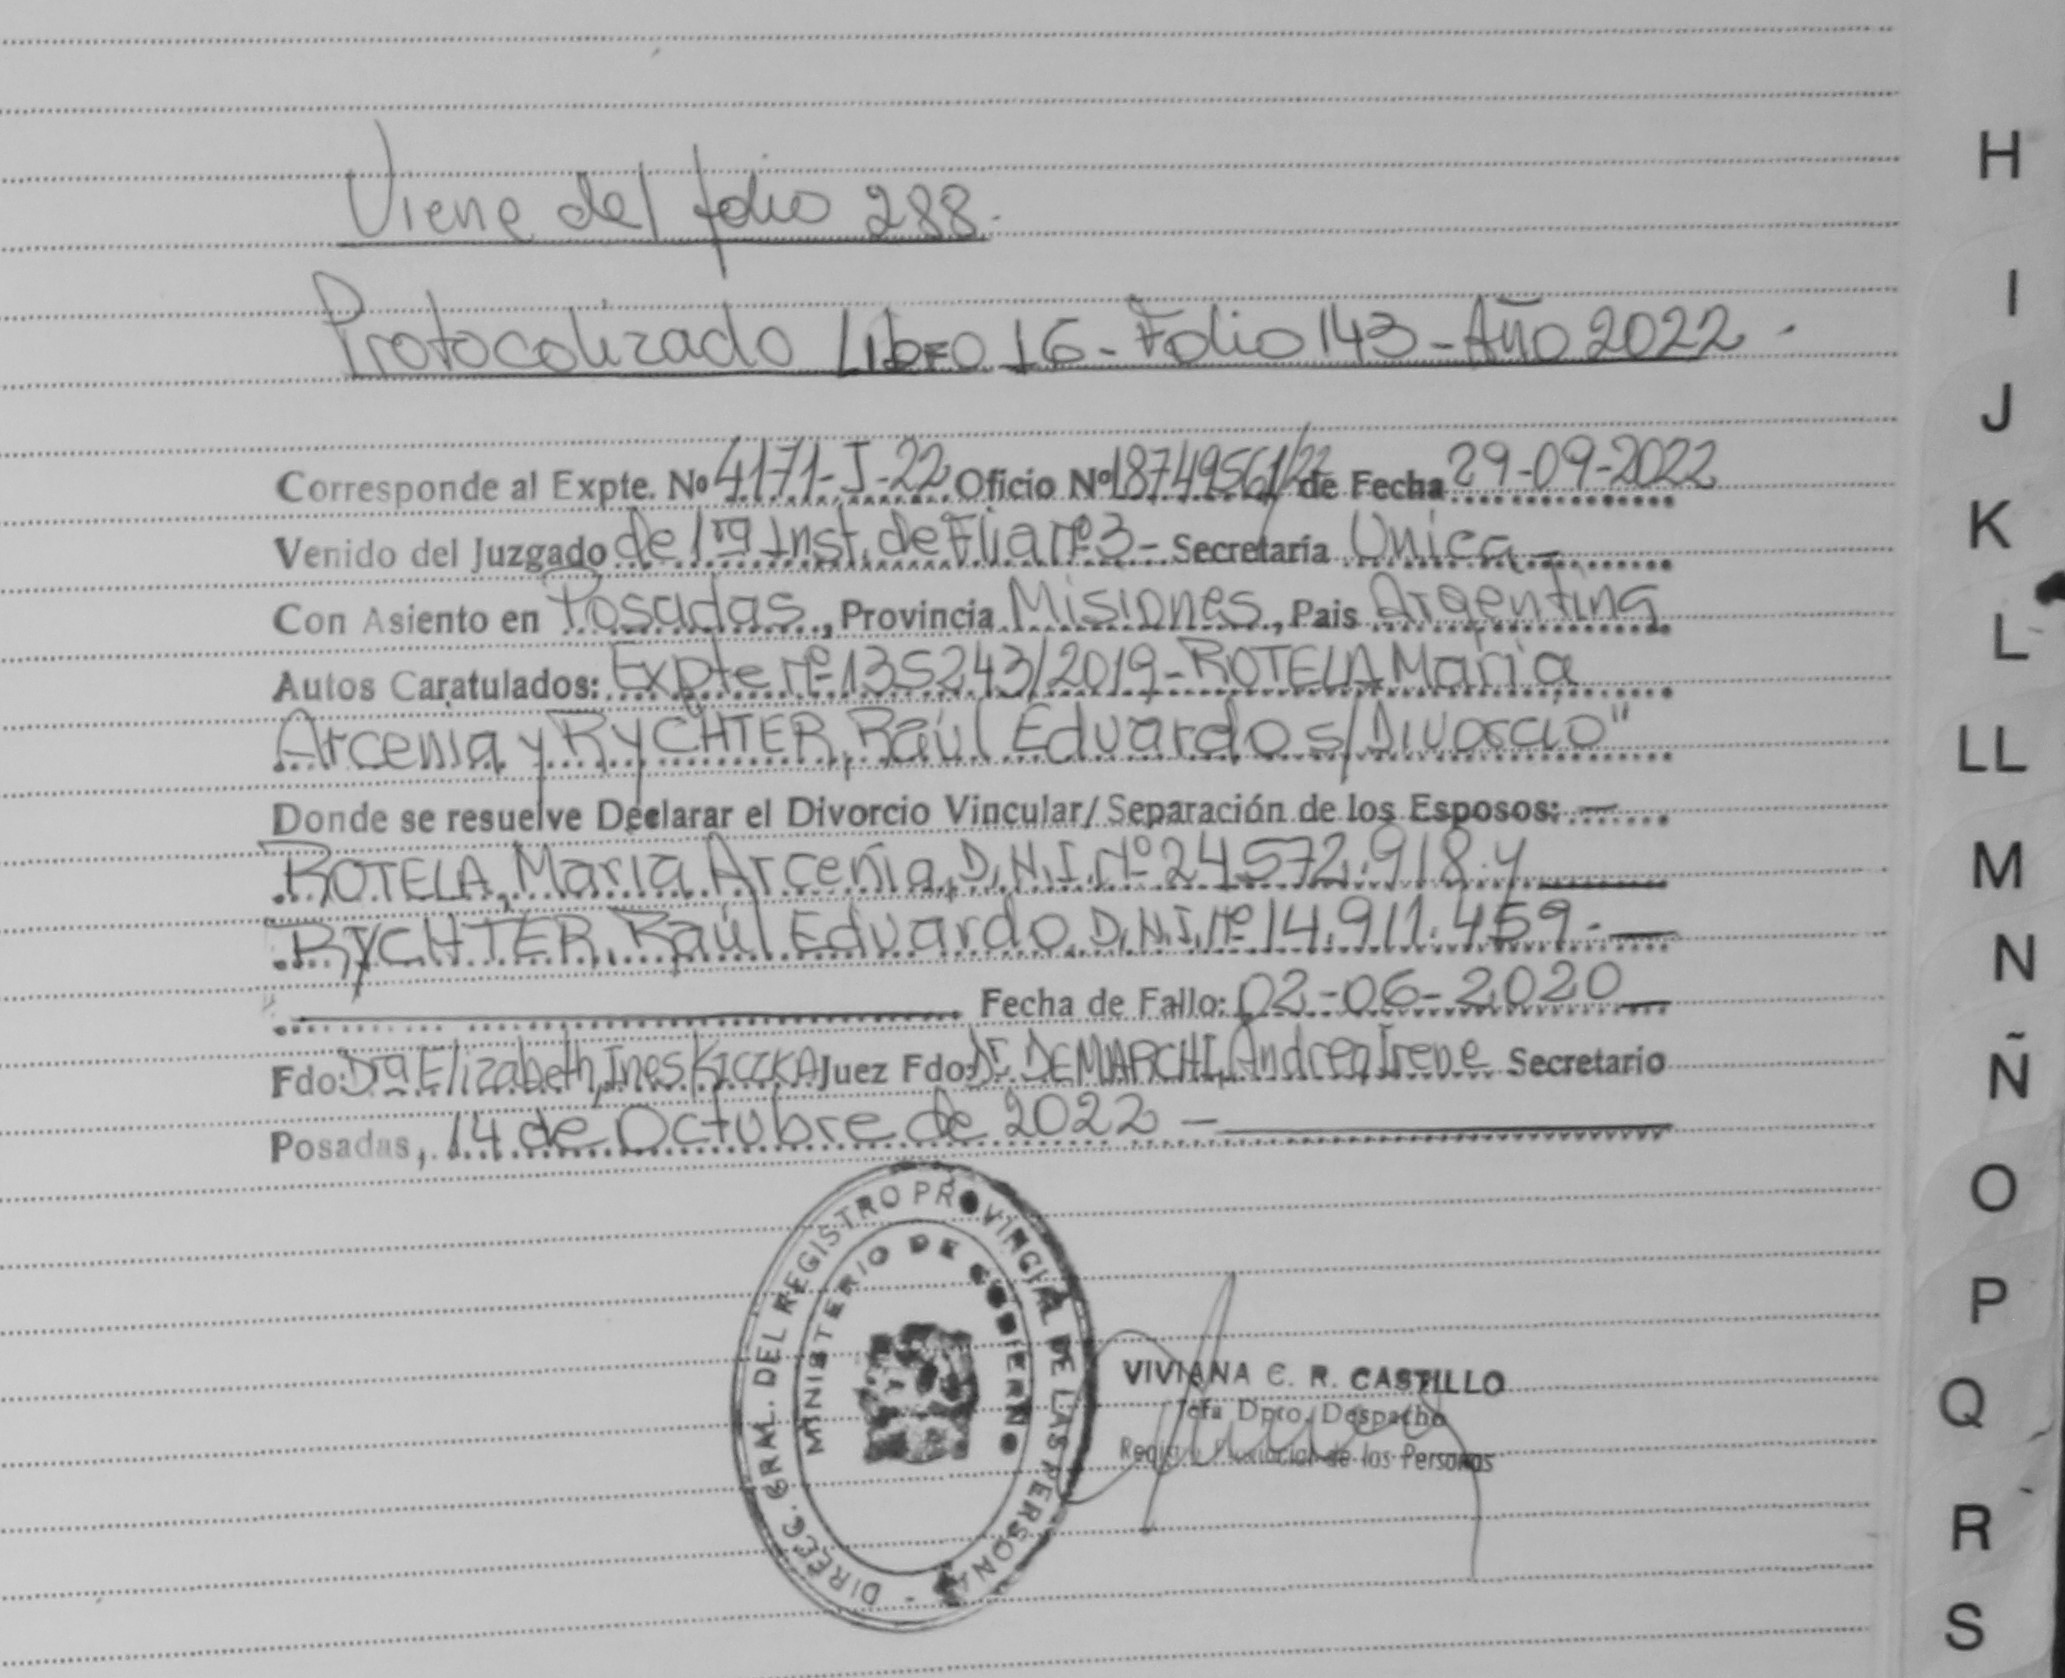 Viene del folio 288.
Protocolizado Libro 16 - Folio 143 - Año 2022 -
Corresponde al Expte. Nº 4171-J-22 Oficio Nº 18749561/22 de Fecha 29-09-2022
Venido del Juzgado de 1ra Inst. de Flia nº 3 - Secretaría Unica -
Con Asiento en Posadas, Provincia Misiones, Pais Argentina
Autos Caratulados: Expte nº 135243/2019 - ROTELA Maria
Arcenia y RYCHTER, Raúl Eduardo s/ Divorcio"
Donde se resuelve Declarar el Divorcio Vincular/ Separación de los Esposos: -
ROTELA, Maria Arcenia, D.N.I. Nº 24572.918 y
RYCHTER, Raúl Eduardo, D.N.I. nº 14.911.459. -
Fecha de Fallo: 02-06-2020
Fdo: Dra Elizabeth, Ines KICZKA Juez Fdo: Dr. DEMARCHI, Andrea Irene Secretario
Posadas, 14 de Octubre de 2022 -
DIRECC. GRAL. DEL REGISTRO PROVINCIAL DE LAS PERSONAS -
MINISTERIO DE GOBIERNO
VIVIANA C. R. CASTILLO
Jefa Dpto. Despacho
Registro Provincial de las Personas
H
I
J
K
L
LL
M
N
Ñ
O
P
Q
R
S